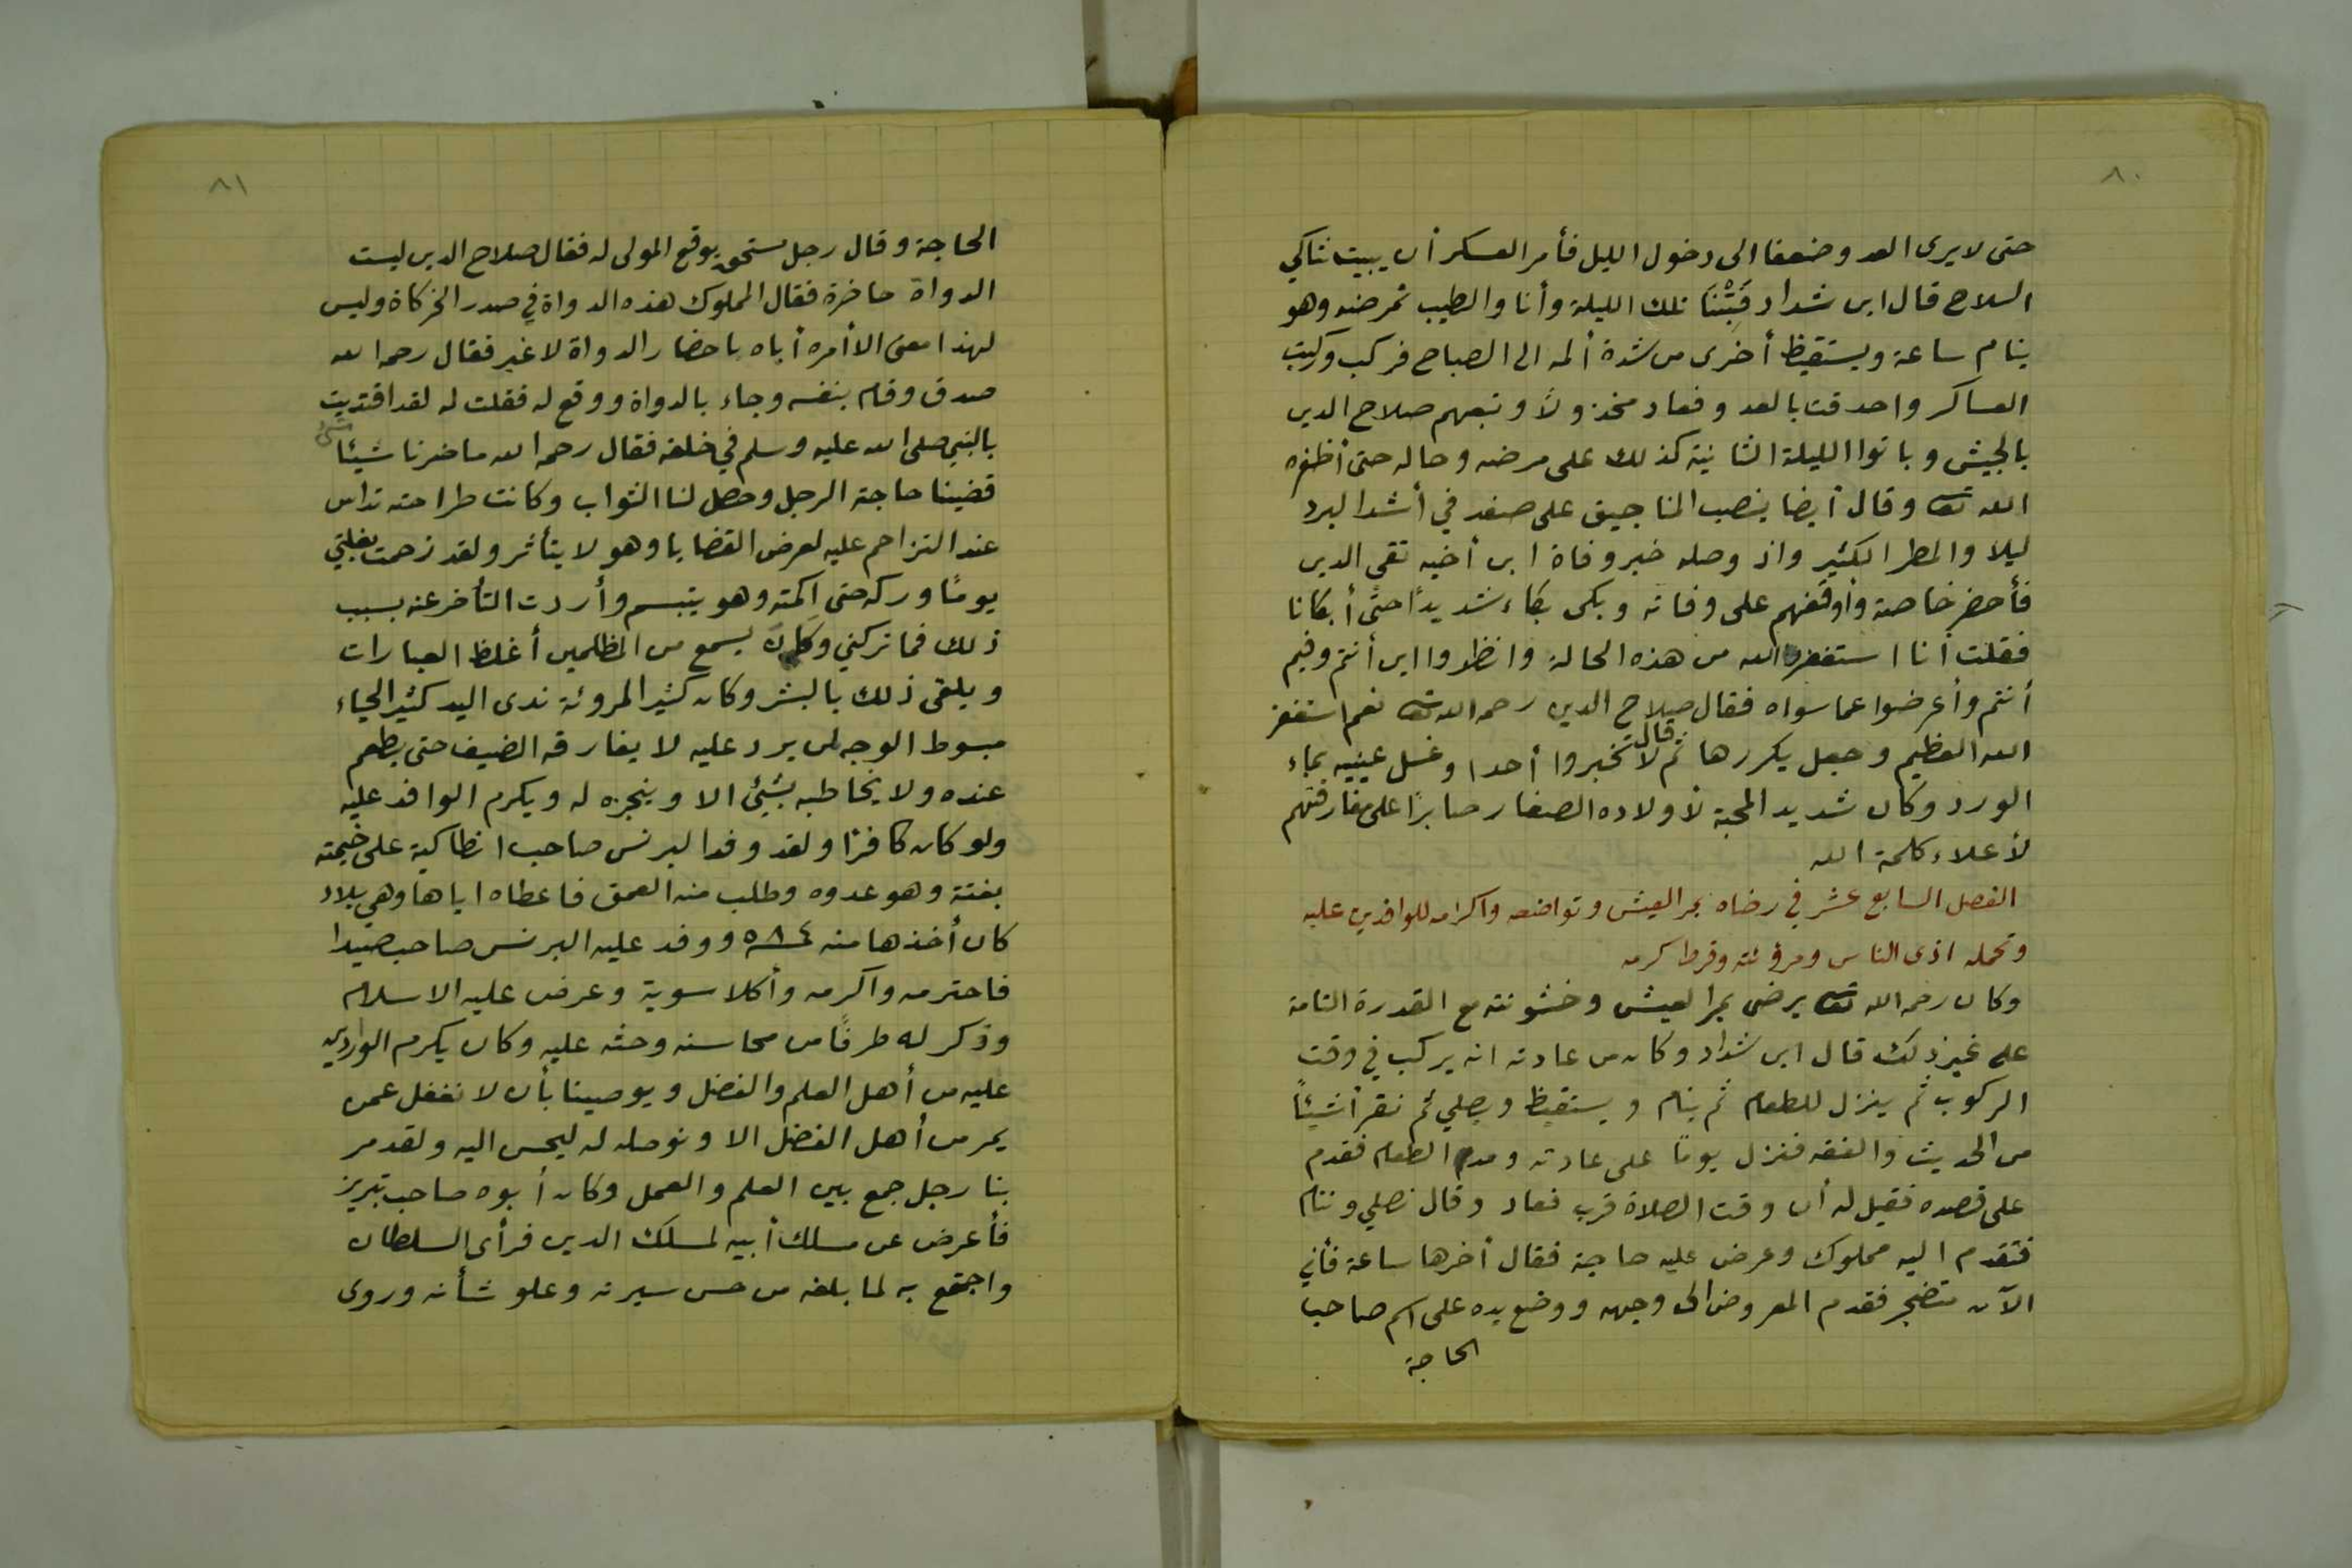 ٨٠
حتى لا يرى العدو ضعفا الى دخول الليل فأمر العسكر أن يبيت شاكي
السلاح قال ابن شداد فَبِتْنَا تلك الليلة وأنا والطبيب نمرضه وهو
ينام ساعة ويستقيظ أخرى من شدة ألمه الى الصباح فركب وركبت
العساكر واحدقت بالعدو فعاد مخذولاً وتبعهم صلاح الدين
بالجيش وباتوا الليلة الثانية كذلك على مرضه وحاله حتى أظفره
الله تعا وقال أيضا ينصب المناجيق على صفد في أشد البرد
ليلا والمطر الكثير واذ وصله خبر وفاة ابن أخيه تقي الدين
فأحضر خاصة وأوقفهم على وفاته وبكى بكاء شديدًا حتى أبكانا
فقلت أنا استغفر الله من هذه الحالة وانظروا اين أنتم وفيم
أنتم وأعرضوا عما سواه فقال صلاح الدين رحمه الله تعا نعم استغفر
الله العظيم وجعل يكررها ثم قال لا تخبروا أحدا وغسل عينيه بماء
الورد وكان شديد المحبة لأولاده الصغار صابرًا على مفارقتهم
لأعلاء كلمة الله
الفصل السابع عشر في رضاه بمر العيش وتواضعه واكرامه للوافدين عليه
وتحمله اذى الناس ومرؤئته وفرط كرمه
وكان رحمه الله تعا يرضى بمر العيش وخشونته مع القدرة التامة
على غير ذلك قال ابن شداد وكان من عادته انه يركب في وقت
الركوب ثم ينزل للطعام ثم ينام ويستقيظ ويصلي ثم نقرأ شيئاً
من الحديث والفقه فنزل يومًا على عادته ومدم الطعام فقدم
على قصده فقيل له أن وقت الصلاة قرب فعاد وقال نصلي وننام
فتقدم اليه مملوك وعرض عليه حاجة فقال أخرها ساعة فأني
الآن متضجر فقدم المعروض الى وجهه ووضع يده على اسم صاحب
الحاجة
٨١
الحاجة وقال رجل مستحق يوقع المولى له فقال صلاح الدين ليست
الدواة حاضرة فقال المملوك هذه الدواة في صدر الخركاة وليس
لهذا معنى الا أمره أياه باحضار الدواة لا غير فقال رحمه الله
صدق وقام بنفسه وجاء بالدواة ووقع له فقلت له لقد اقتديت
بالنبي صلى الله عليه وسلم في خلقه فقال رحمه الله ما ضرنا شيئا
قضينا حاجة الرجل وحصل لنا الثواب وكانت طراحته تداس
عند التزاحم عليه لعرض القضايا وهو لا يتأثر ولقد زحمت بغلتي
يومًا وركه حتى المته وهو يتبسم وأردت التأخر عنه بسبب
ذلك فما تركني وكان يسمع من المظلمين أغلظ العبارات
ويلقى ذلك بالبشر وكان كثير المروئة ندى اليد كثير الحياء
مبسوط الوجه لمن يرد عليه لا يفارقه الضيف حتى يطعم
عنده ولا يخاطبه بشيئ الا وينجزه له ويكرم الوافد عليه
ولو كان كافرًا ولقد وفد البرنس صاحب انطاكية على خيمته
بغتة وهو عدوه وطلب منه العمق فاعطاه اياها وهي بلاد
كان أخذها منه ٥٨٤ ووفد عليه البرنس صاحب صيدا
فاحترمه وأكرمه وأكلا سوية وعرض عليه الاسلام
وذكر له طرفًا من محاسنه وحثه عليه وكان يكرم الواردين
عليه من أهل العلم والفضل ويوصينا بأن لا نغفل عمن
يمر من أهل الفضل الا ونوصله له ليحسن اليه ولقد مر
بنا رجل جمع بين العلم والعمل وكان أبوه صاحب تبريز
فأعرض عن مسلك أبيه لمسلك الدين فرأى السلطان
واجتمع به لما بلغه من حسن سيرته وعلو شأنه وروى